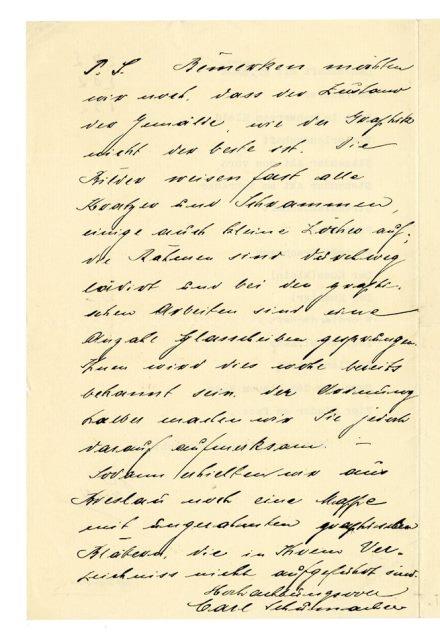 P. S. Bemerken möchten
wir noch, dass der Zustand
der Gemälde, wie der Graphik
nicht der beste ist. Die
Bilder weisen fast alle
Kratzer und Schrammen,
einige auch kleine Löcher auf,
die Rahmen sind durchweg
lädirt und bei den graphi-
schen Arbeiten sind eine
Anzahl Glasscheiben gesprungen.
Ihnen wird dies wohl bereits
bekannt sein. der Ordnung
halber machen wir Sie jedoch
darauf aufmerksam. —
Sodann erhielten wir aus
Breslau noch eine Mappe
mit ungerahmten graphischen
Blättern, die in Ihrem Ver-
zeichniss nicht aufgeführt sind.
Hochachtungsvoll
Carl Schumacher